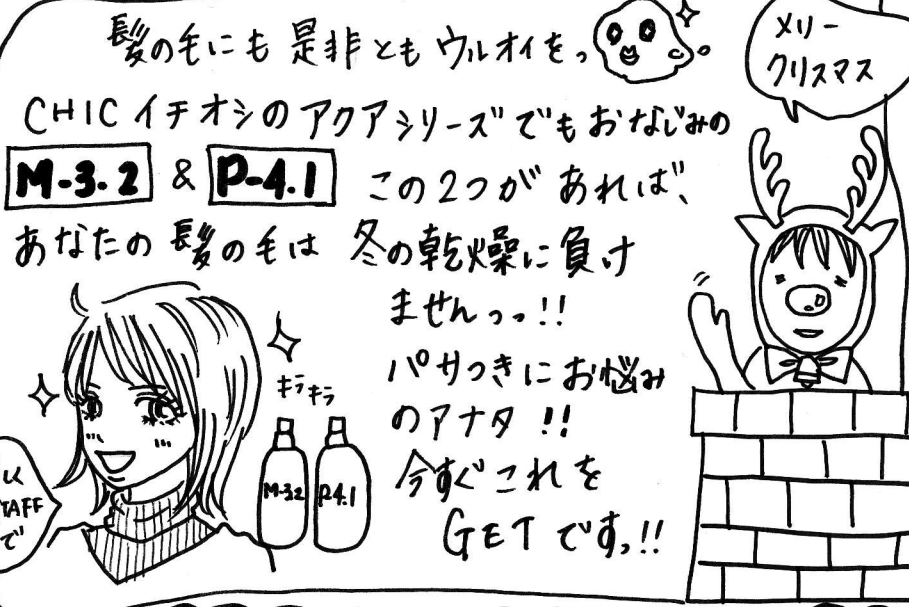 髪の毛にも是非ともウルオイをっ
CHICイチオシのアクアシリーズでもおなじみの
M-3.2 & P-4.1 この2つがあれば、
あなたの髪の毛は冬の乾燥に負け
ませんっっ!!
パサつきにお悩み
のアナタ!!
今すぐこれを
GETですっ!!
メリー
クリスマス
キラキラ
M-3.2
P4.1
TAFF
で